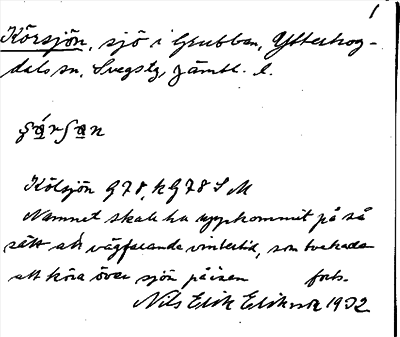 1
Körsjön, sjö i Grubban, Ytterhog-
dals sn, Svegs tg, Jämtl. l.
Kölsjön G78, kG78 S M
Namnet skall ha uppkommit på så
sätt att vägfarande vintertid, som brukade
att köra över sjön på isen forts.
Nils Erik Eriksson 1932